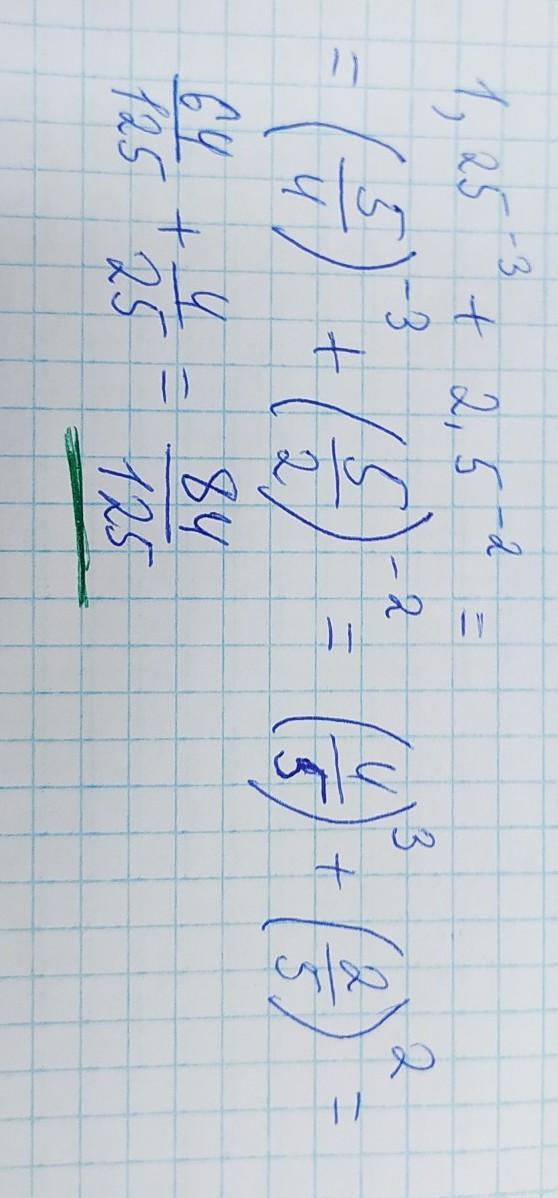 1,25⁻³ + 2,5⁻² =
= (5/4)⁻³ + (5/2)⁻² = (4/5)³ + (2/5)² =
64/125 + 4/25 = 84/125